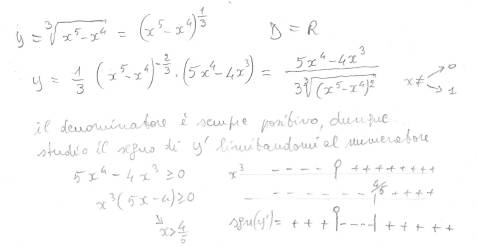 y = ∛(x⁵-x⁴) = (x⁵-x⁴)^(1/3)    D = R
y = 1/3 (x⁵-x⁴)^(-2/3) · (5x⁴-4x³) = (5x⁴-4x³) / (3∛(x⁵-x⁴)²)    x≠ 0 1
il denominatore è sempre positivo, dunque
studio il segno di y' limitandomi al numeratore
5x⁴-4x³ ≥ 0    x³ - - - - - - 0 + + + + + + + +
x³(5x-4) ≥ 0    - - - - - - - - - 4/5 + + + +
x ≥ 4/5    sgn(y') = + + + 0 - - - - + + + + +